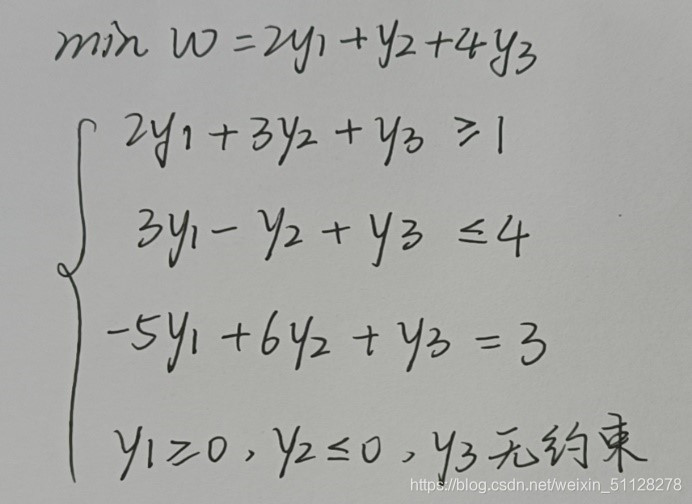 min W = 2y₁ + y₂ + 4y₃
2y₁ + 3y₂ + y₃ ≥ 1
3y₁ - y₂ + y₃ ≤ 4
-5y₁ + 6y₂ + y₃ = 3
y₁ ≥ 0 , y₂ ≤ 0 , y₃ 无约束
https://blog.csdn.net/weixin_51128278